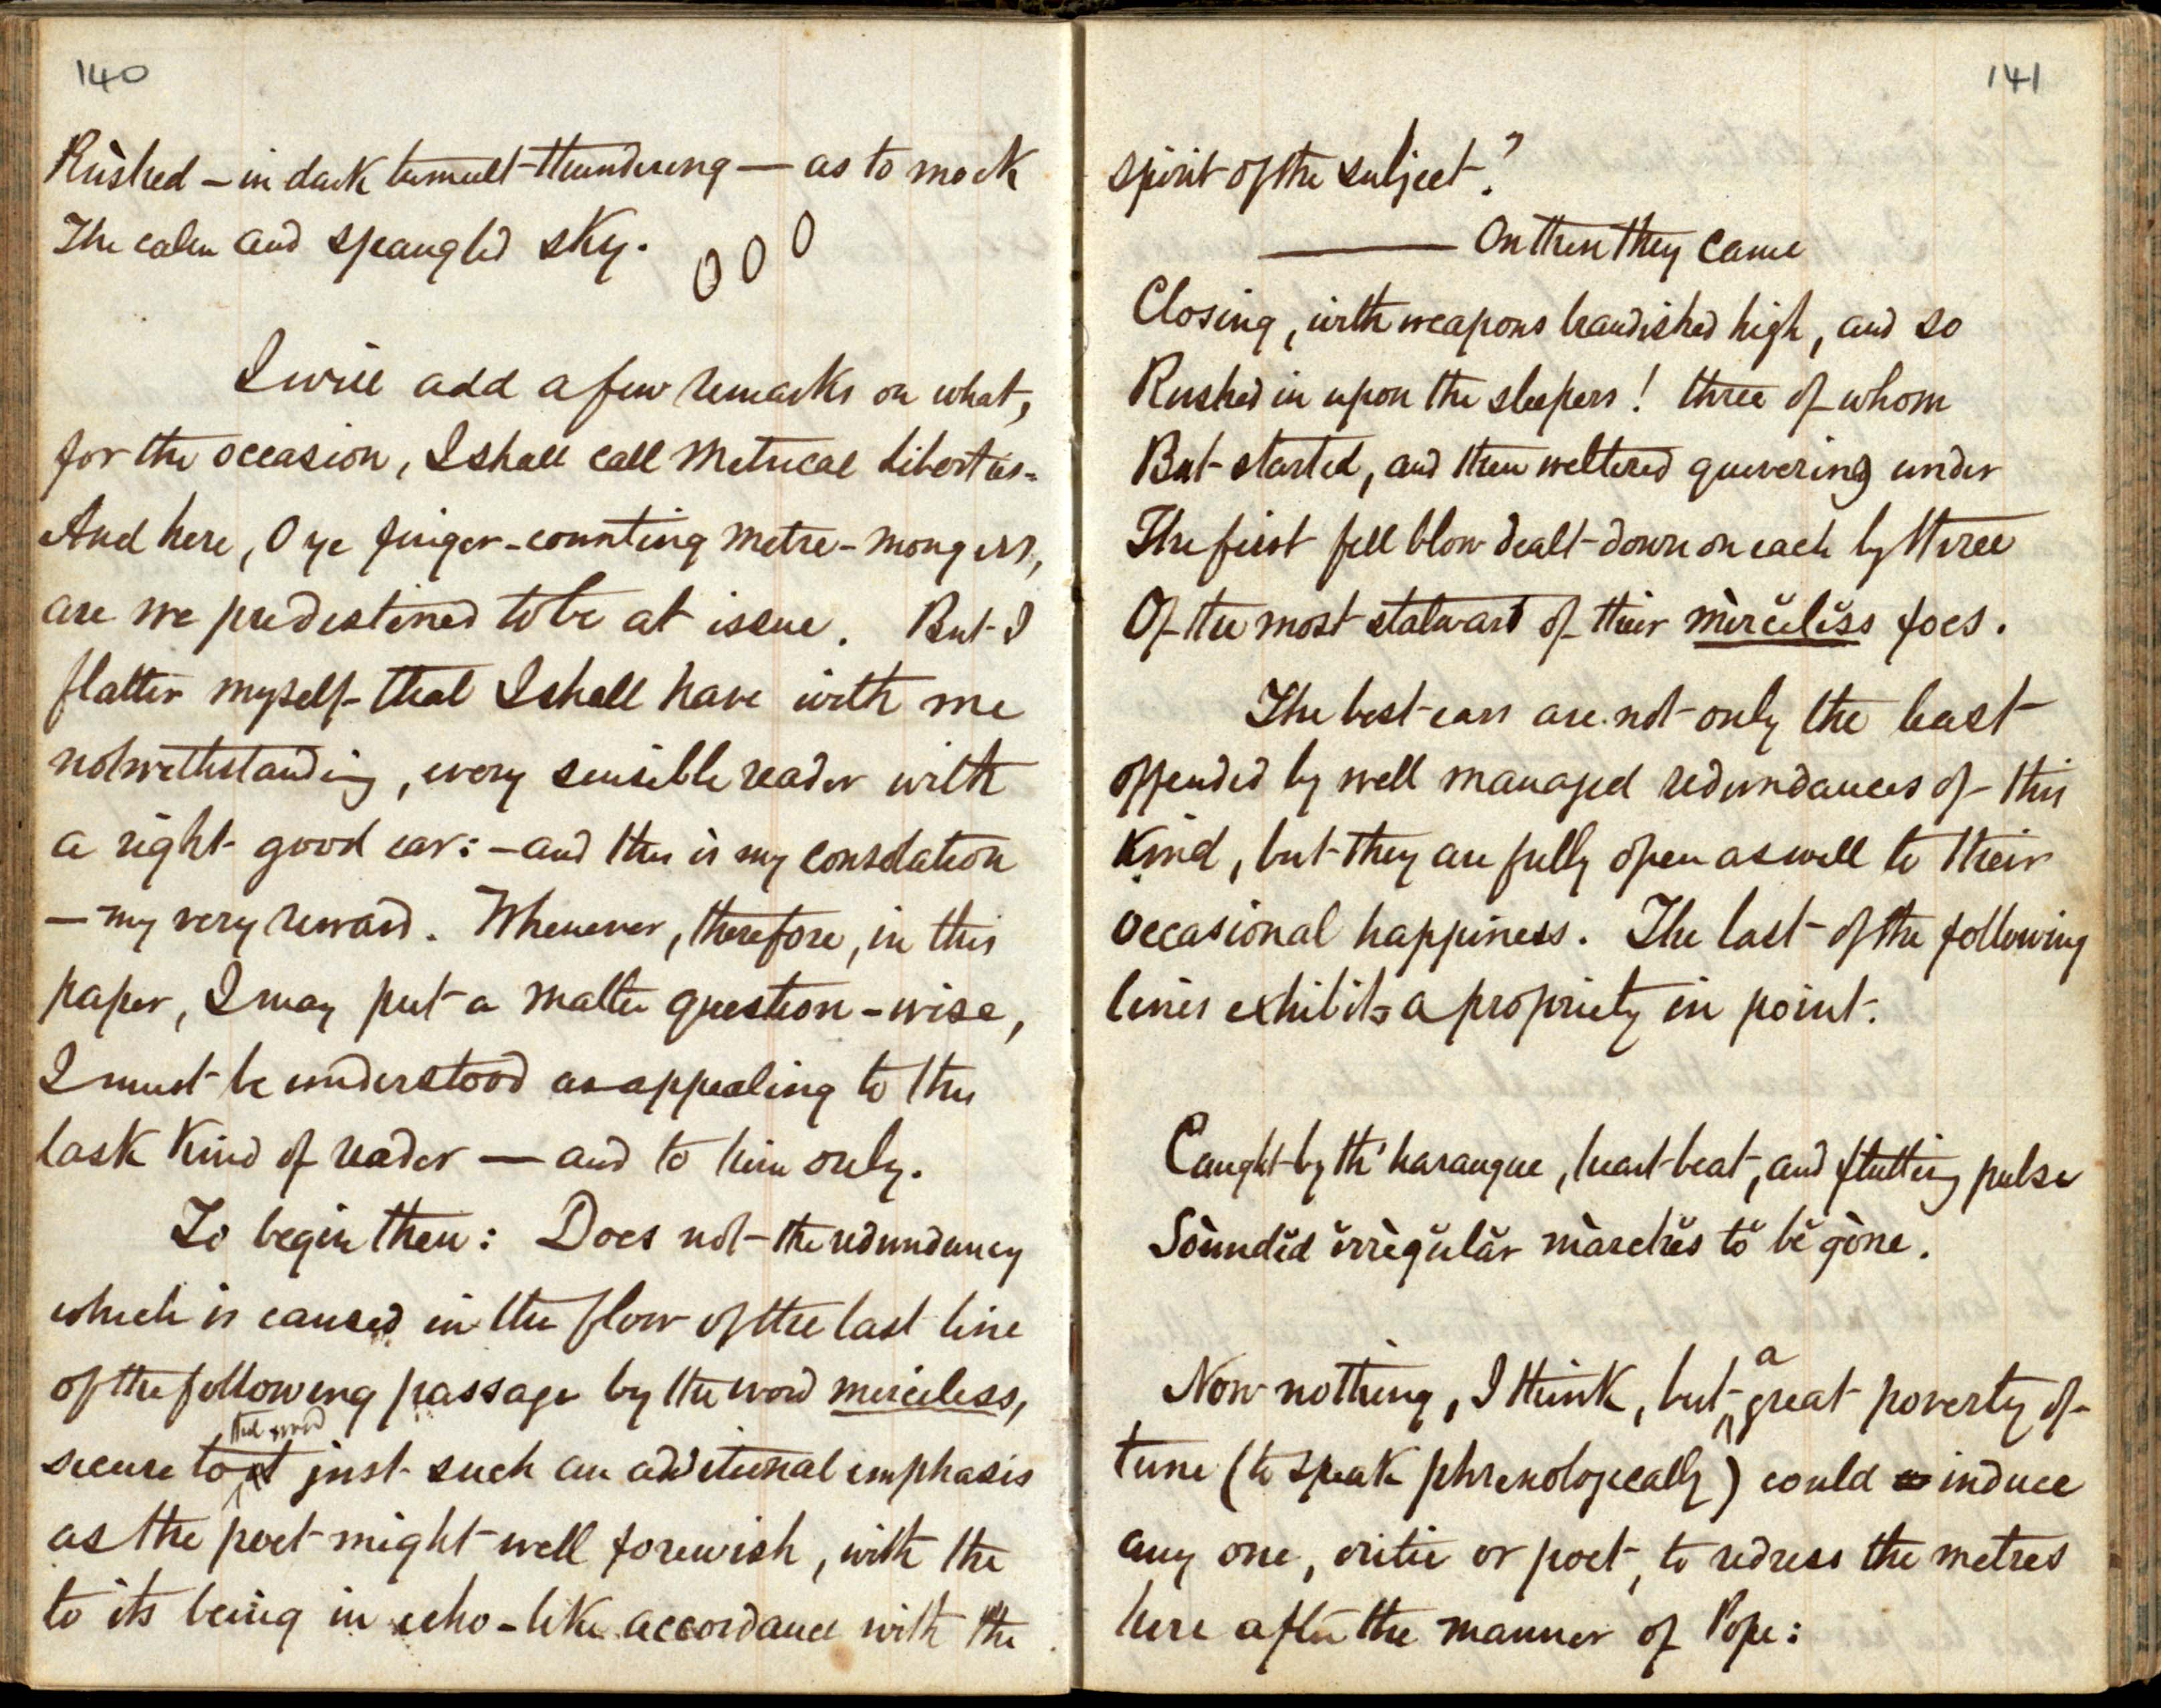 140
Rùshed – in dark tumult-thundering — as to mock
The calm and spangled sky. 000
I will add a few remarks on what,
for the occasion, I shall call Metrical Liberties.
And here, O ye finger-counting metre-mongers,
are we predestined to be at issue. But I
flatter myself that I shall have with me
notwithstanding, every sensible reader with
a right good ear: – and this is my consolation
– my very reward. Whenever, therefore, in this
paper, I may put a matter question-wise,
I must be understood as appealing to this
last kind of reader — and to him only.
To begin then: Does not the redundancy
which is caused in the flow of the last line
of the following passage by the word merciless,
that word
secure to it just such an additional emphasis
as the poet might well forewish, with the
to its being in echo-like accordance with the
141
spirit of the subject?
——— On then they came
Closing, with weapons brandished high, and so
Rushed in upon the sleepers! three of whom
But started, and then weltered quivering under
The first fell blow dealt down on each by three
Of the most stalwart of their mèrcĭlĕss foes.
The best ears are not only the least
offended by well managed redundances of this
kind, but they are fully open as well to their
occasional happiness. The last of the following
lines exhibits a propriety in point.
Caught by th' harangue, heart-beat, and fluttering pulse
Sòundĕd ĭrrègŭlăr màrchĕs tŏ bĕ gòne.
a
Now nothing, I think, but great poverty of
tune (to speak phrenologically) could induce
any one, critic or poet, to redress the metres
here after the manner of Pope: